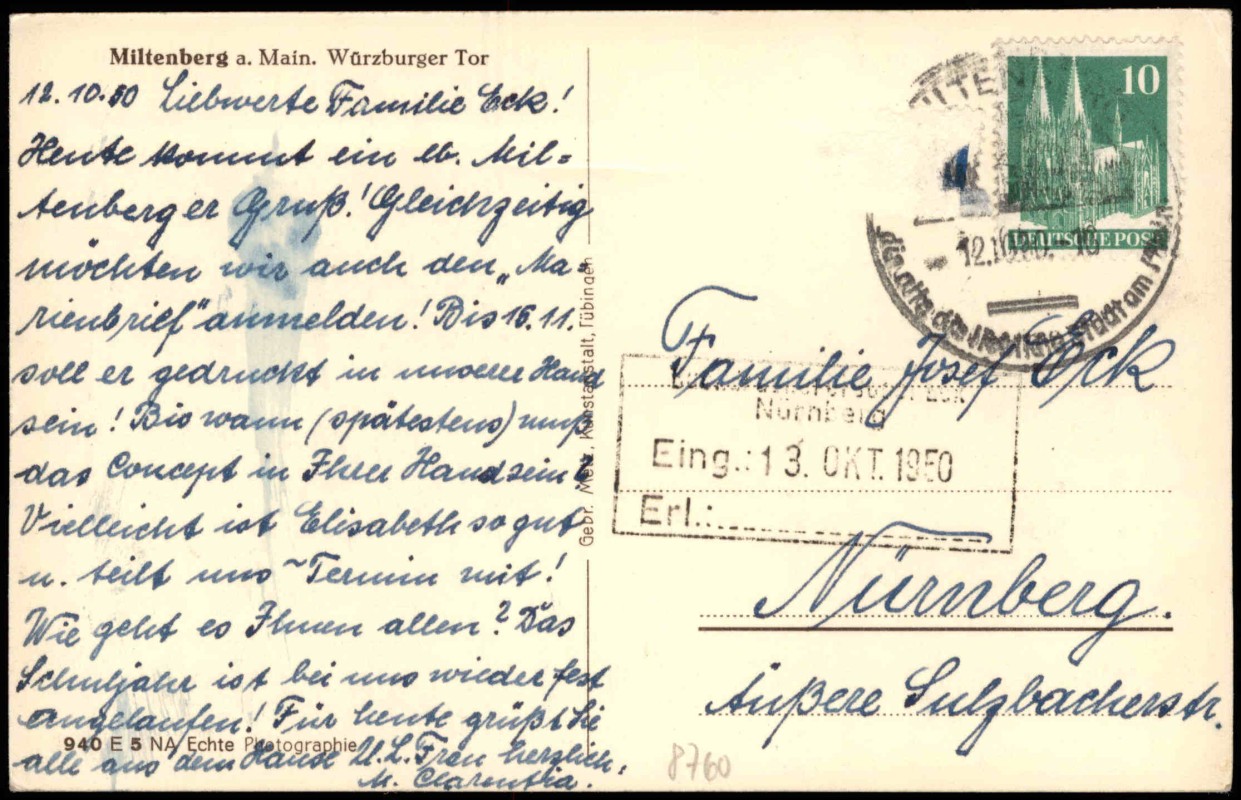 Miltenberg a. Main. Würzburger Tor
12.10.50 Liebwerte Familie Eck!
Heute kommt ein lb. Mil=
tenberger Gruß! Gleichzeitig
möchten wir auch den „Ma=
rienbrief" anmelden! Bis 16.11.
soll er gedruckt in unserer Hand
sein! Bis wann (spätestens) muß
das Concept in Ihrer Hand sein?
Vielleicht ist Elisabeth so gut
u. teilt uns Termin mit!
Wie geht es Ihnen allen? Das
Schuljahr ist bei uns wieder fest
angelaufen! Für heute grüßt Sie
alle aus dem Hause U. L. Frau herzlich,
M. Clarentia.
940 E 5 NA Echte Photographie
Gebr. Metz, Kunstanstalt, Tübingen
10
DEUTSCHE POST
12.10.50.-18
die alte deutsche Stadt am Main
Familie Josef Eck
Nürnberg
Eing.: 13. OKT. 1950
Erl.:
Nürnberg.
Äußere Sulzbacherstr.
8760